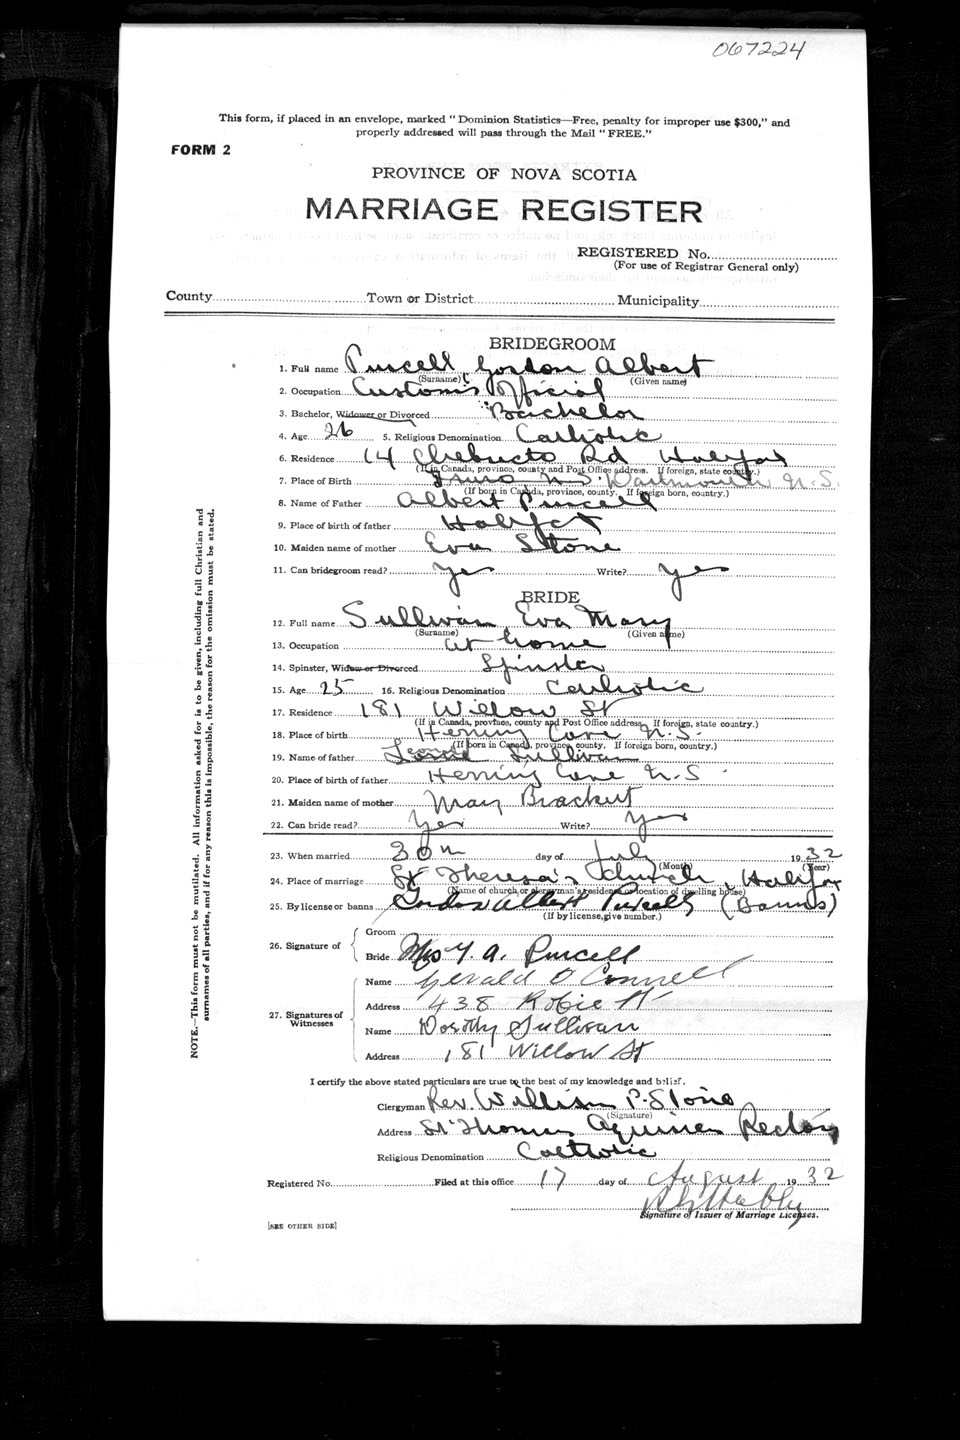 067224
This form, if placed in an envelope, marked "Dominion Statistics—Free, penalty for improper use $300," and
properly addressed will pass through the Mail "FREE."
FORM 2
PROVINCE OF NOVA SCOTIA
MARRIAGE REGISTER
REGISTERED No.
(For use of Registrar General only)
County Town or District Municipality
BRIDEGROOM
1. Full name Purcell, Gordon Albert
(Surname) (Given name)
2. Occupation Customs Official
3. Bachelor, Widower or Divorced Bachelor
4. Age 26 5. Religious Denomination Catholic
6. Residence 14 Chebucto Rd Halifax
(If in Canada, province, county and Post Office address. If foreign, state country.)
7. Place of Birth N.S. Dartmouth N.S.
(If born in Canada, province, county. If foreign born, country.)
8. Name of Father Albert Purcell
9. Place of birth of father Halifax
10. Maiden name of mother Eva Stone
11. Can bridegroom read? yes Write? yes
BRIDE
12. Full name Sullivan Eva Mary
(Surname) (Given name)
13. Occupation at home
14. Spinster, Widow or Divorced Spinster
15. Age 25 16. Religious Denomination Catholic
17. Residence 181 Willow St
(If in Canada, province, county and Post Office address. If foreign, state country.)
18. Place of birth Herring Cove N.S.
(If born in Canada, province, county. If foreign born, country.)
19. Name of father Sullivan
20. Place of birth of father Herring Cove N.S.
21. Maiden name of mother May Brackett
22. Can bride read? Yes Write? Yes
23. When married 30th day of July 1932
(Month) (Year)
24. Place of marriage St Theresa's Church, Halifax
(Name of church or clergyman's residence or location of dwelling house)
25. By license or banns Gordon Albert Purcell (Banns)
(If by license, give number.)
26. Signature of
Groom
Bride Mrs G. A. Purcell
27. Signatures of Witnesses
Name Gerald O'Connell
Address 438 Robie St
Name Dorothy Sullivan
Address 181 Willow St
I certify the above stated particulars are true to the best of my knowledge and belief.
Clergyman Rev. William P. Stone
(Signature)
Address St Thomas Aquinas Rectory
Religious Denomination Catholic
Registered No. Filed at this office 17 day of August 1932
Signature of Issuer of Marriage Licenses.
[SEE OTHER SIDE]
NOTE.—This form must not be mutilated. All information asked for is to be given, including full Christian and
surnames of all parties, and if for any reason this is impossible, the reason for the omission must be stated.